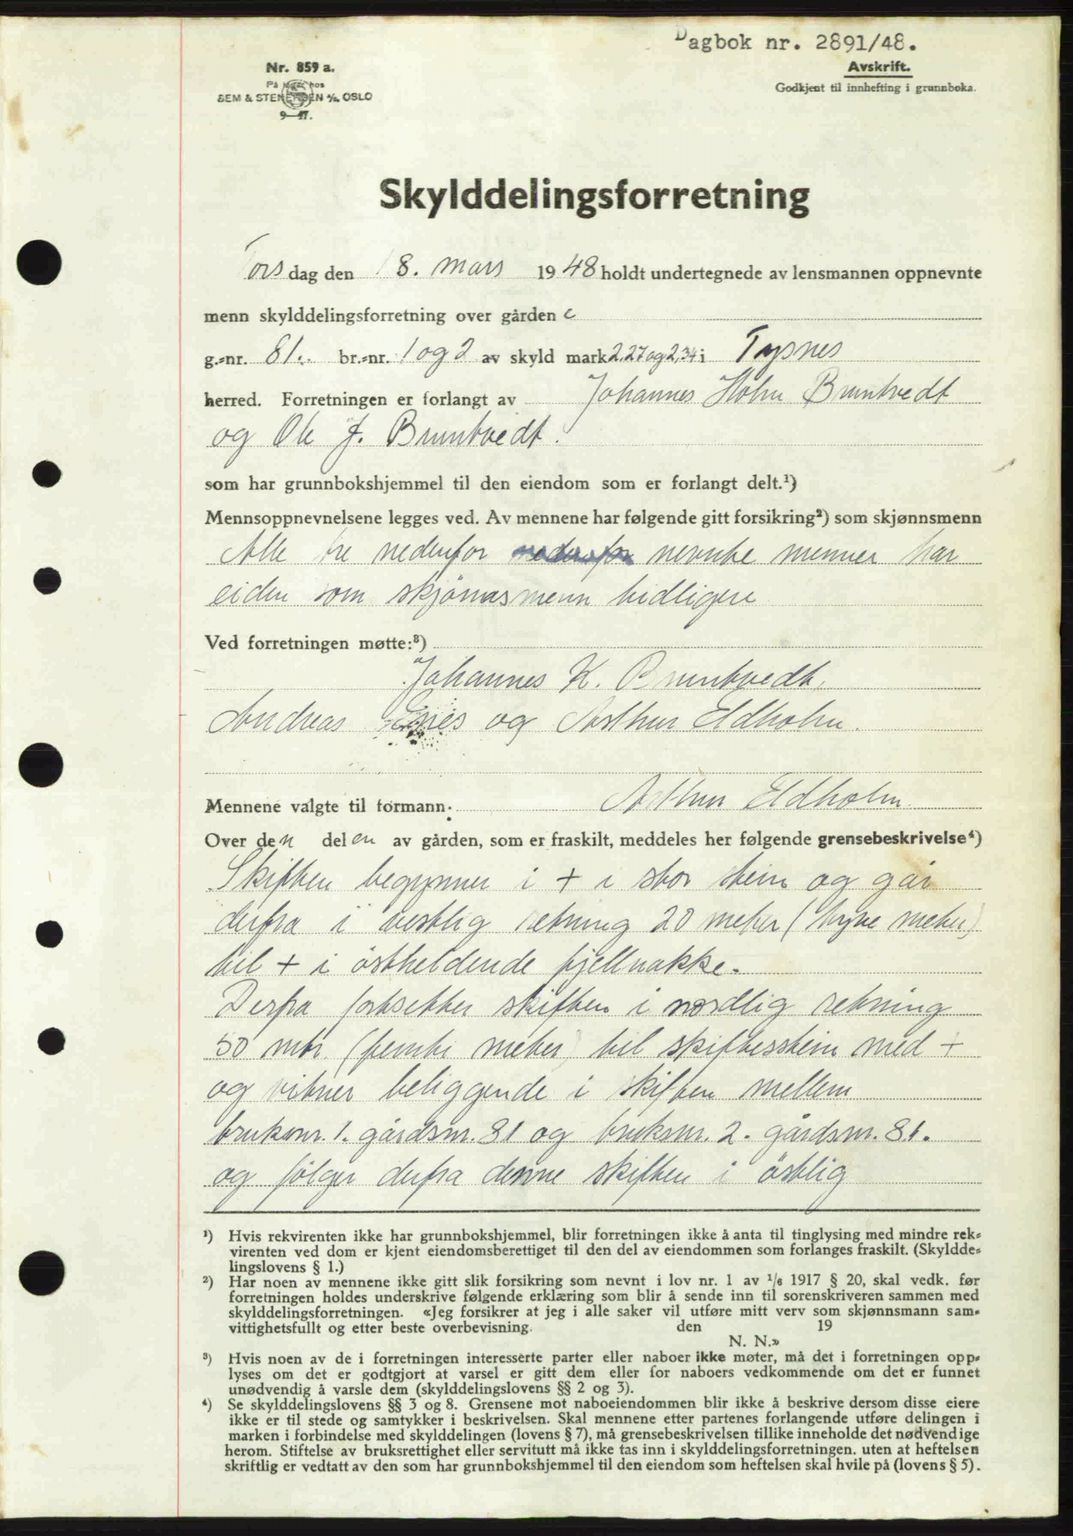 Dagbok nr. 2891/48.
Nr. 859 a.
På lager hos
SEM & STENERSEN A/S, OSLO
9—47.
Avskrift.
Godkjent til innhefting i grunnboka.
Skylddelingsforretning
Torsdag den 18. mars 1948 holdt undertegnede av lensmannen oppnevnte
menn skylddelingsforretning over gården
g.-nr. 81. br.-nr. 1 og 2 av skyld mark 2,27 og 2,34 i Tysnes
herred. Forretningen er forlangt av Johannes Holm Bruntvedt
og Ole J. Bruntvedt.
som har grunnbokshjemmel til den eiendom som er forlangt delt.¹)
Mennsoppnevnelsene legges ved. Av mennene har følgende gitt forsikring²) som skjønnsmenn
Alle tre nedenfor nevnte menner har
eiden som skjönnsmenn tidligere
Ved forretningen møtte:³)
Johannes K. Bruntvedt,
Andreas Enes og Arthur Eldholm.
Mennene valgte til formann: Arthur Eldholm.
Over den delen av gården, som er fraskilt, meddeles her følgende grensebeskrivelse⁴)
Skiften begynner i + i stor stein og går
derfra i vestlig retning 20 meter (tyve meter)
til + i östheldende fjellnakke.
Derfra fortsetter skiften i nordlig retning
50 mtr. (femti meter) til skiftesstein med +
og vitner beliggende i skiften mellem
bruksnr. 1. gårdsnr. 81 og bruksnr. 2. gårdsnr. 81.
og følger derfra denne skiften i östlig
¹) Hvis rekvirenten ikke har grunnbokshjemmel, blir forretningen ikke å anta til tinglysing med mindre rek-
virenten ved dom er kjent eiendomsberettiget til den del av eiendommen som forlanges fraskilt. (Skyldde-
lingslovens § 1.)
²) Har noen av mennene ikke gitt slik forsikring som nevnt i lov nr. 1 av 1/6 1917 § 20, skal vedk. før
forretningen holdes underskrive følgende erklæring som blir å sende inn til sorenskriveren sammen med
skylddelingsforretningen. «Jeg forsikrer at jeg i alle saker vil utføre mitt verv som skjønnsmann sam-
vittighetsfullt og etter beste overbevisning. den 19
N. N.»
³) Hvis noen av de i forretningen interesserte parter eller naboer ikke møter, må det i forretningen opp-
lyses om det er godtgjort at varsel er gitt dem eller for naboers vedkommende om det er funnet
unødvendig å varsle dem (skylddelingslovens §§ 2 og 3).
⁴) Se skylddelingslovens §§ 3 og 8. Grensene mot naboeiendommen blir ikke å beskrive dersom disse eiere
ikke er til stede og samtykker i beskrivelsen. Skal mennene etter partenes forlangende utføre delingen i
marken i forbindelse med skylddelingen (lovens § 7), må grensebeskrivelsen tillike inneholde det nødvendige
herom. Stiftelse av bruksrettighet eller servitutt må ikke tas inn i skylddelingsforretningen. uten at heftelsen
skriftlig er vedtatt av den som har grunnbokshjemmel til den eiendom som heftelsen skal hvile på (lovens § 5).